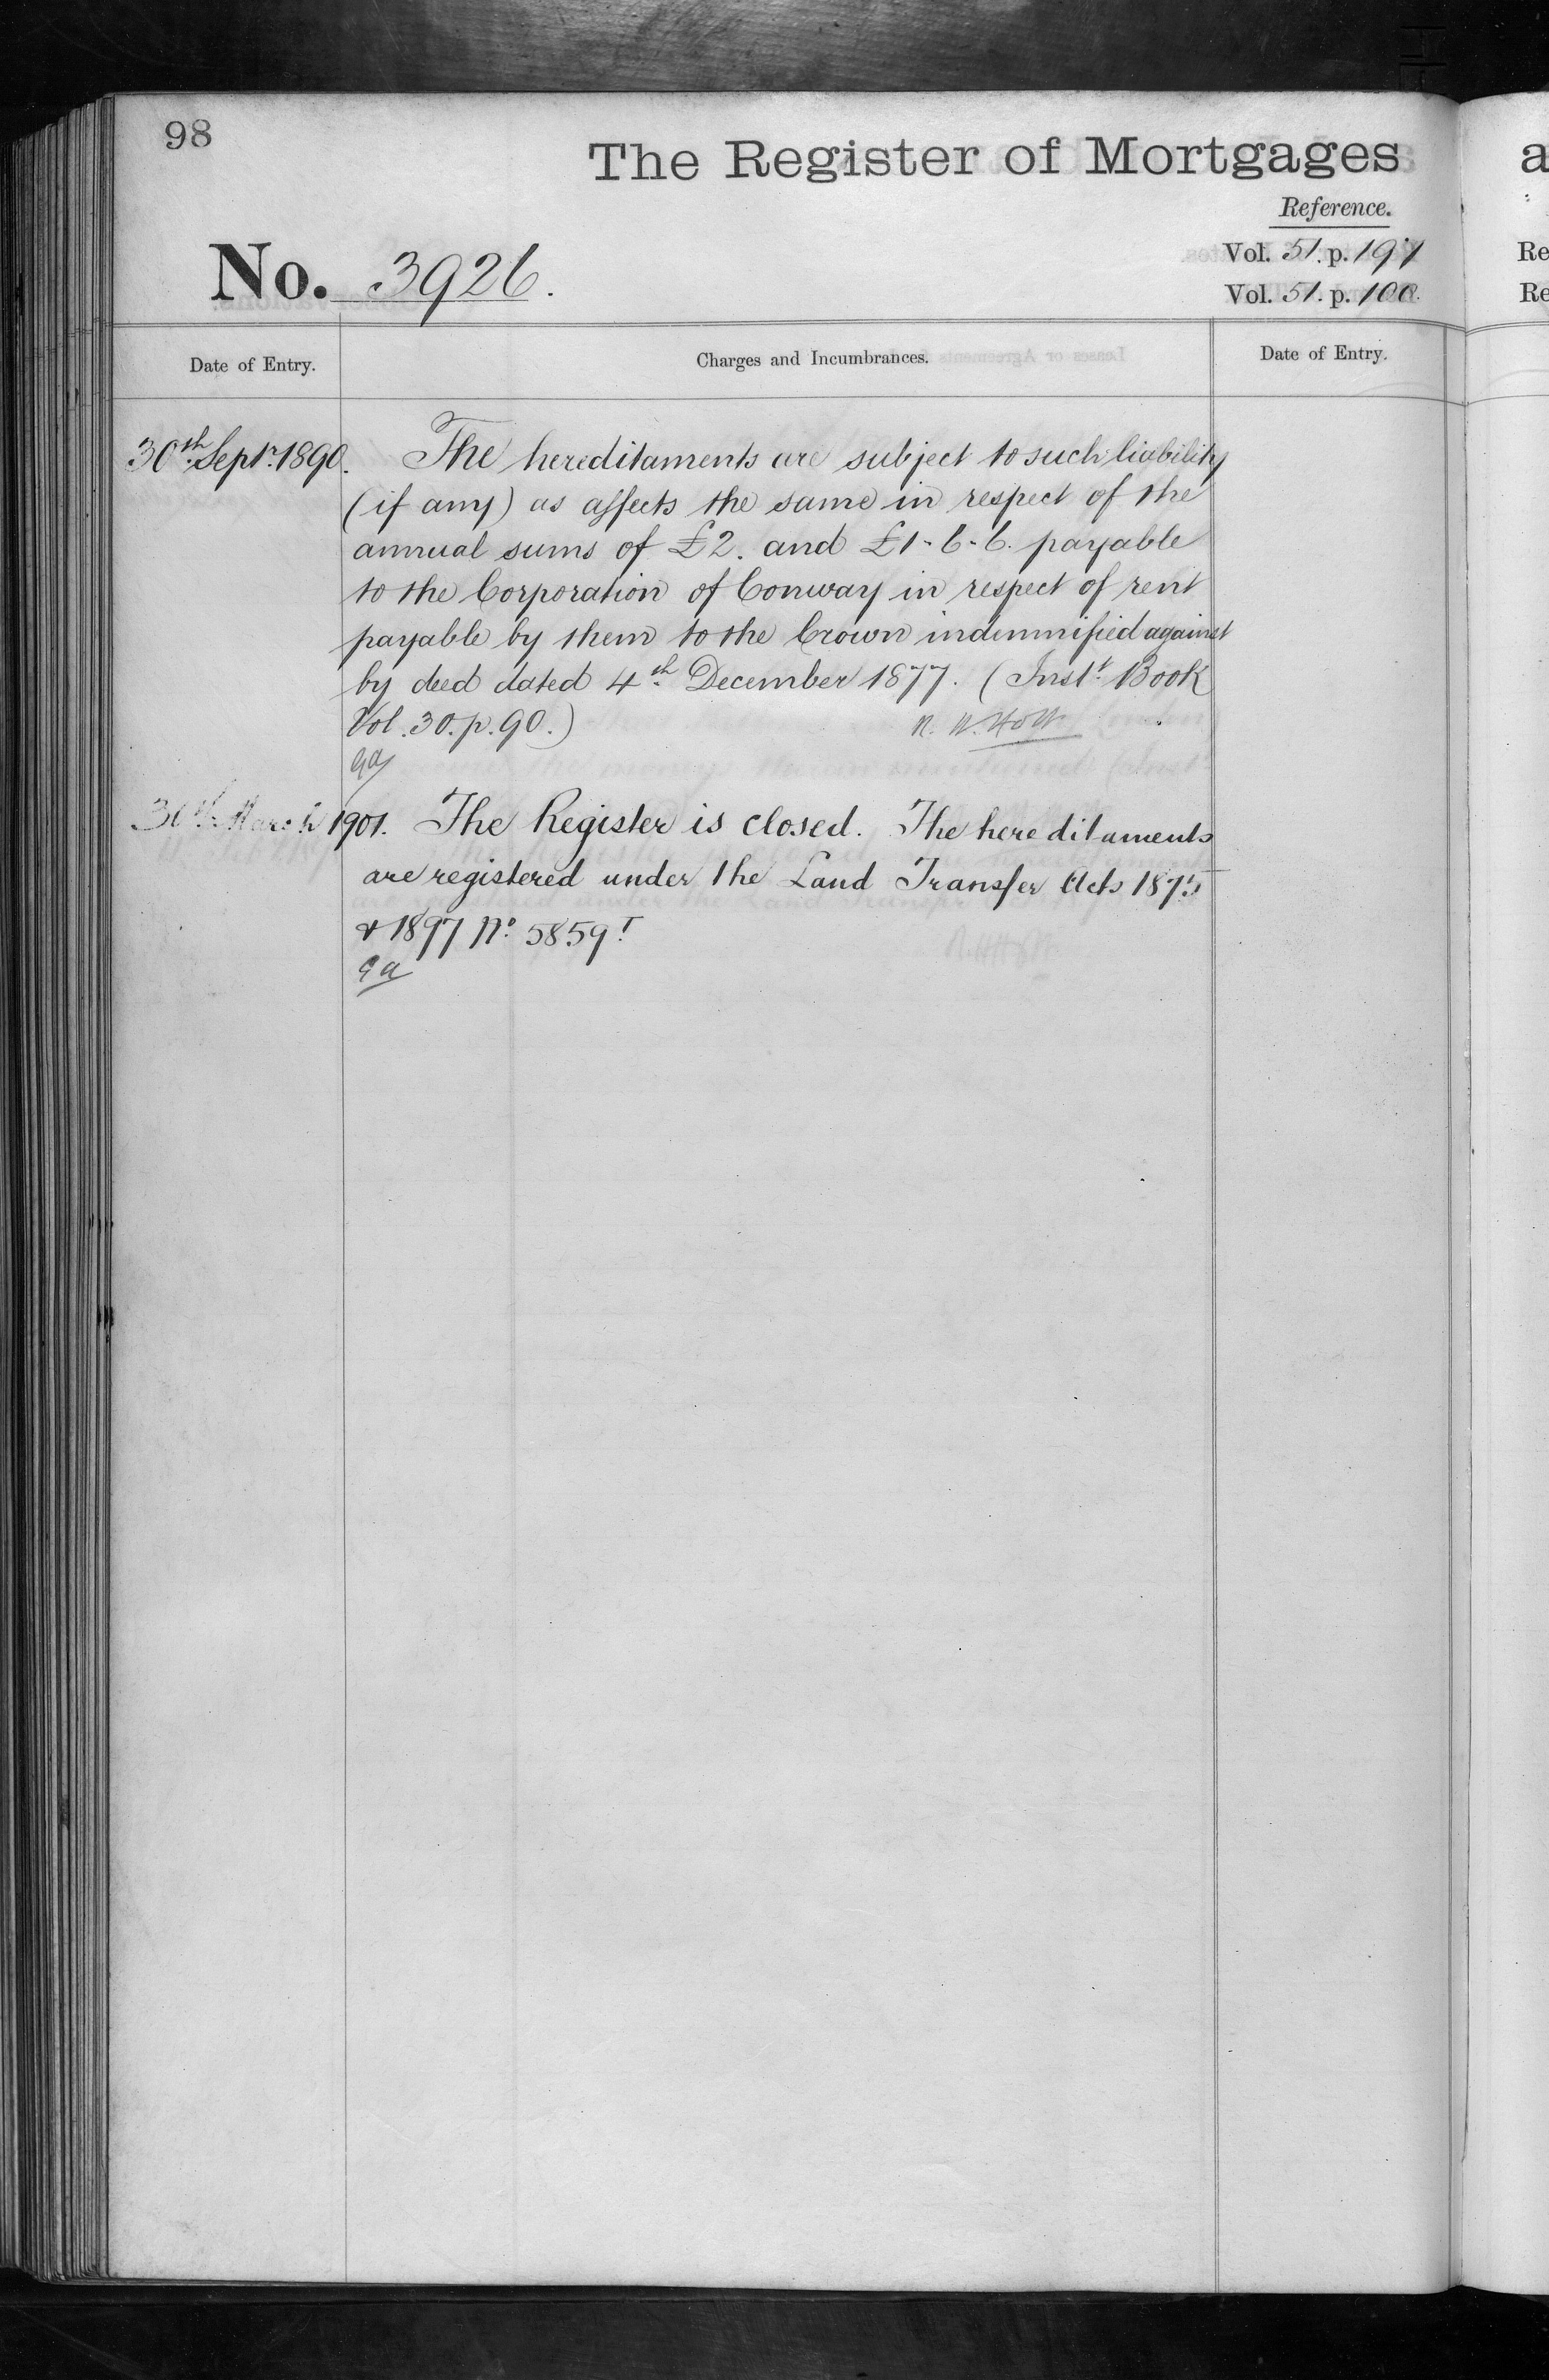 98
The Register of Mortgages
Reference.
No. 3926.
Vol. 51. p. 197
Vol. 51. p. 100.
Date of Entry.
Charges and Incumbrances.
Date of Entry.
30th Septr. 1890. The hereditaments are subject to such liability
(if any) as affects the same in respect of the
annual sums of £2. and £1-6-6. payable
to the Corporation of Conway in respect of rent
payable by them to the Crown indemnified against
by deed dated 4th December 1877. (Inst. Book
Vol. 30. p. 90.)
R. H. Holt
30th March 1901. The Register is closed. The hereditaments
are registered under the Land Transfer Acts 1875
& 1897 No. 5859
a
Re
Re